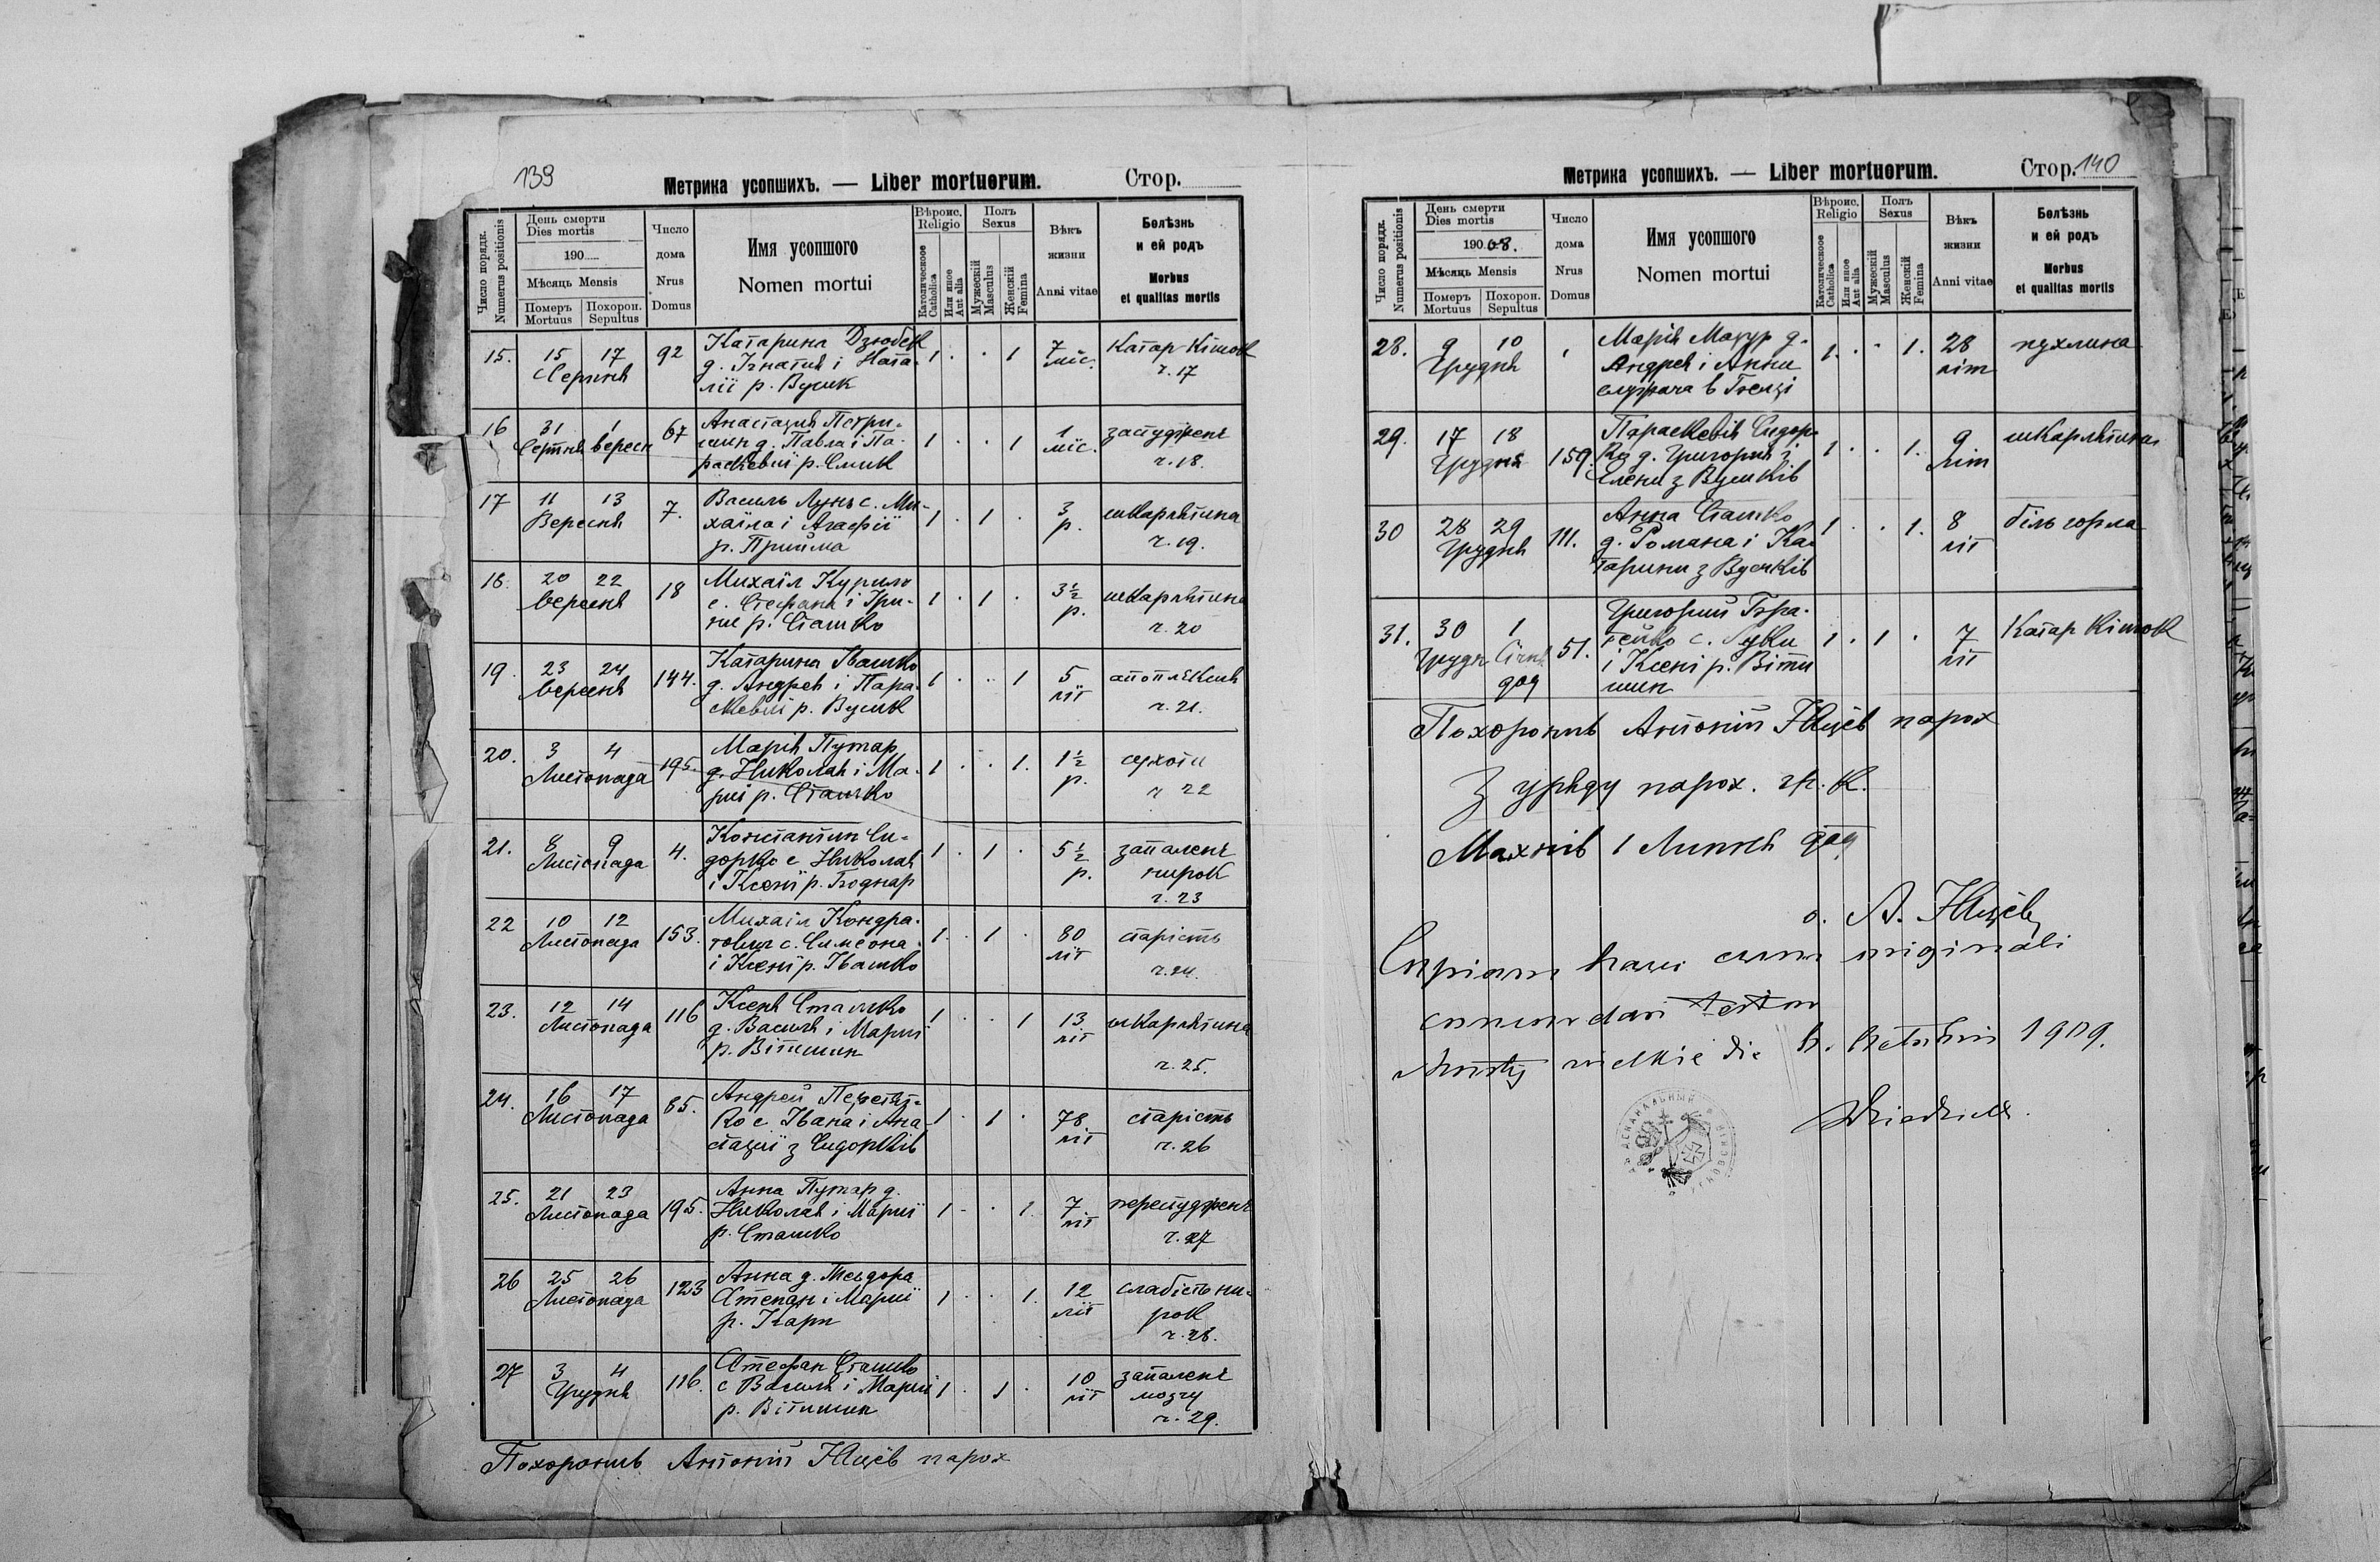 139
Метрика усопшихъ. — Liber mortuorum.
Стор.
Число порядк.
Numerus positionis
День смерти
Dies mortis
190
Мѣсяць Mensis
Померъ
Mortuus
Похорон.
Sepultus
Число
дома
Nrus
Domus
Имя усопшого
Nomen mortui
Вѣроис.
Religio
Католическоое
Catholica
Или иное
Aut alia
Полъ
Sexus
Мужескій
Masculus
Женскій
Femina
Вѣкъ
жизни
Anni vitae
Болѣзнь
и ей родъ
Morbus
et qualitas mortis
15. 15 17 92 Катарина Дзюбек 1 . . 1 7 Катар Кішок
Серпня д. Ігнатия і Ната- міс. ч. 17
лії р. Вушк
16 31 1 67 Анастазия Петри- 1 . . 1 1 застуджене
Серпня вересн шин д. Павла і Па- міс. ч. 18.
раскевиї р. Смик
17 11 13 7. Василь Лунь с. Ми- 1 . 1 . 3 шкарлятина
Вересня хаіла і Агафії р. ч. 19.
р. Прийма
18. 20 22 18 Михаіл Курило 1 . 1 . 3 1/2 шкарлятина
вересня с. Стефана і Іри- р. ч. 20
ни р. Сташко
19. 23 24 144. Катарина Івашко 1 . . 1 5 апоплєксия
вересня д. Андрея і Пара- літ ч. 21.
скевиї р. Вушк
20. 3 4 195. Марія Путар 1 . . 1. 1 1/2 сухоти
Листопада д. Николая і Ма- р. ч 22
риї р. Сташко
21. 8 9 4. Константин Си- 1 . 1 . 5 1/2 запалене
Листопада дорко с Николая р. нирок
і Ксенї р. Боднар ч. 23
22 10 12 153. Михаіл Кондра- 1. . 1 . 80 старість
Листопада тович с. Симеона літ ч. 24.
і Ксенї р. Івашко
23. 12 14 116 Ксеня Сташко 1 . . 1 13 шкарлятина
Листопада д. Василя і Мариї літ
р. Вітишин ч. 25.
24. 16 17 85. Андрей 1 . 1 . 78 старість
Листопада ко с Івана і Ана- літ ч. 26
стазиї з Сидорків
25. 21 23 195. Анна Путар д. 1 - . 1. 7 перестуджене
Листопада Николая і Мариї літ
р. Сташко ч. 27
26 25 26 123 Анна д. Теодора 1 . . 1. 12 слабість ни-
Листопада Степан і Мариї літ рок
р. Карп ч. 28.
27 3 4 116. Стефан Сташко 1 . 1 . 10 запалене
Грудня с Василя і Мариї літ мозгу
р. Вітишин ч. 29.
Похоронив Антоній парох
Метрика усопшихъ. — Liber mortuorum.
Стор. 140
Число порядк.
Numerus positionis
День смерти
Dies mortis
190 08.
Мѣсяць Mensis
Померъ
Mortuus
Похорон.
Sepultus
Число
дома
Nrus
Domus
Имя усопшого
Nomen mortui
Вѣроис.
Religio
Католическоое
Catholica
Или иное
Aut alia
Полъ
Sexus
Мужескій
Masculus
Женскій
Femina
Вѣкъ
жизни
Anni vitae
Болѣзнь
и ей родъ
Morbus
et qualitas mortis
28. 9 10 Марія Мазур д. 1. . . 1. 28 пухлина
Грудня Андрея і Анни літ
29. 17 18 159. Параскевія Сидор- 1 . . 1. 9 шкарлятина
Грудня ка д. Григория і літ
Єлени з Вушків
30 28 29 111. Анна Сташко 1 . . 1. 8 біль горла
Грудня д. Романа і Ка- літ
тарини з Вушків
31. 30 1 51. Григорий 1 . 1 . 7 Катар Кішок
Грудн Січня с. Луки літ
909 і Ксенї р. Віти
шин
Похоронив Антоній парох
З уряду парох. гр. к.
Махнів 1 Липня 909
о. А.
Copiam hanc cum originali
concordari testor
die 1909.